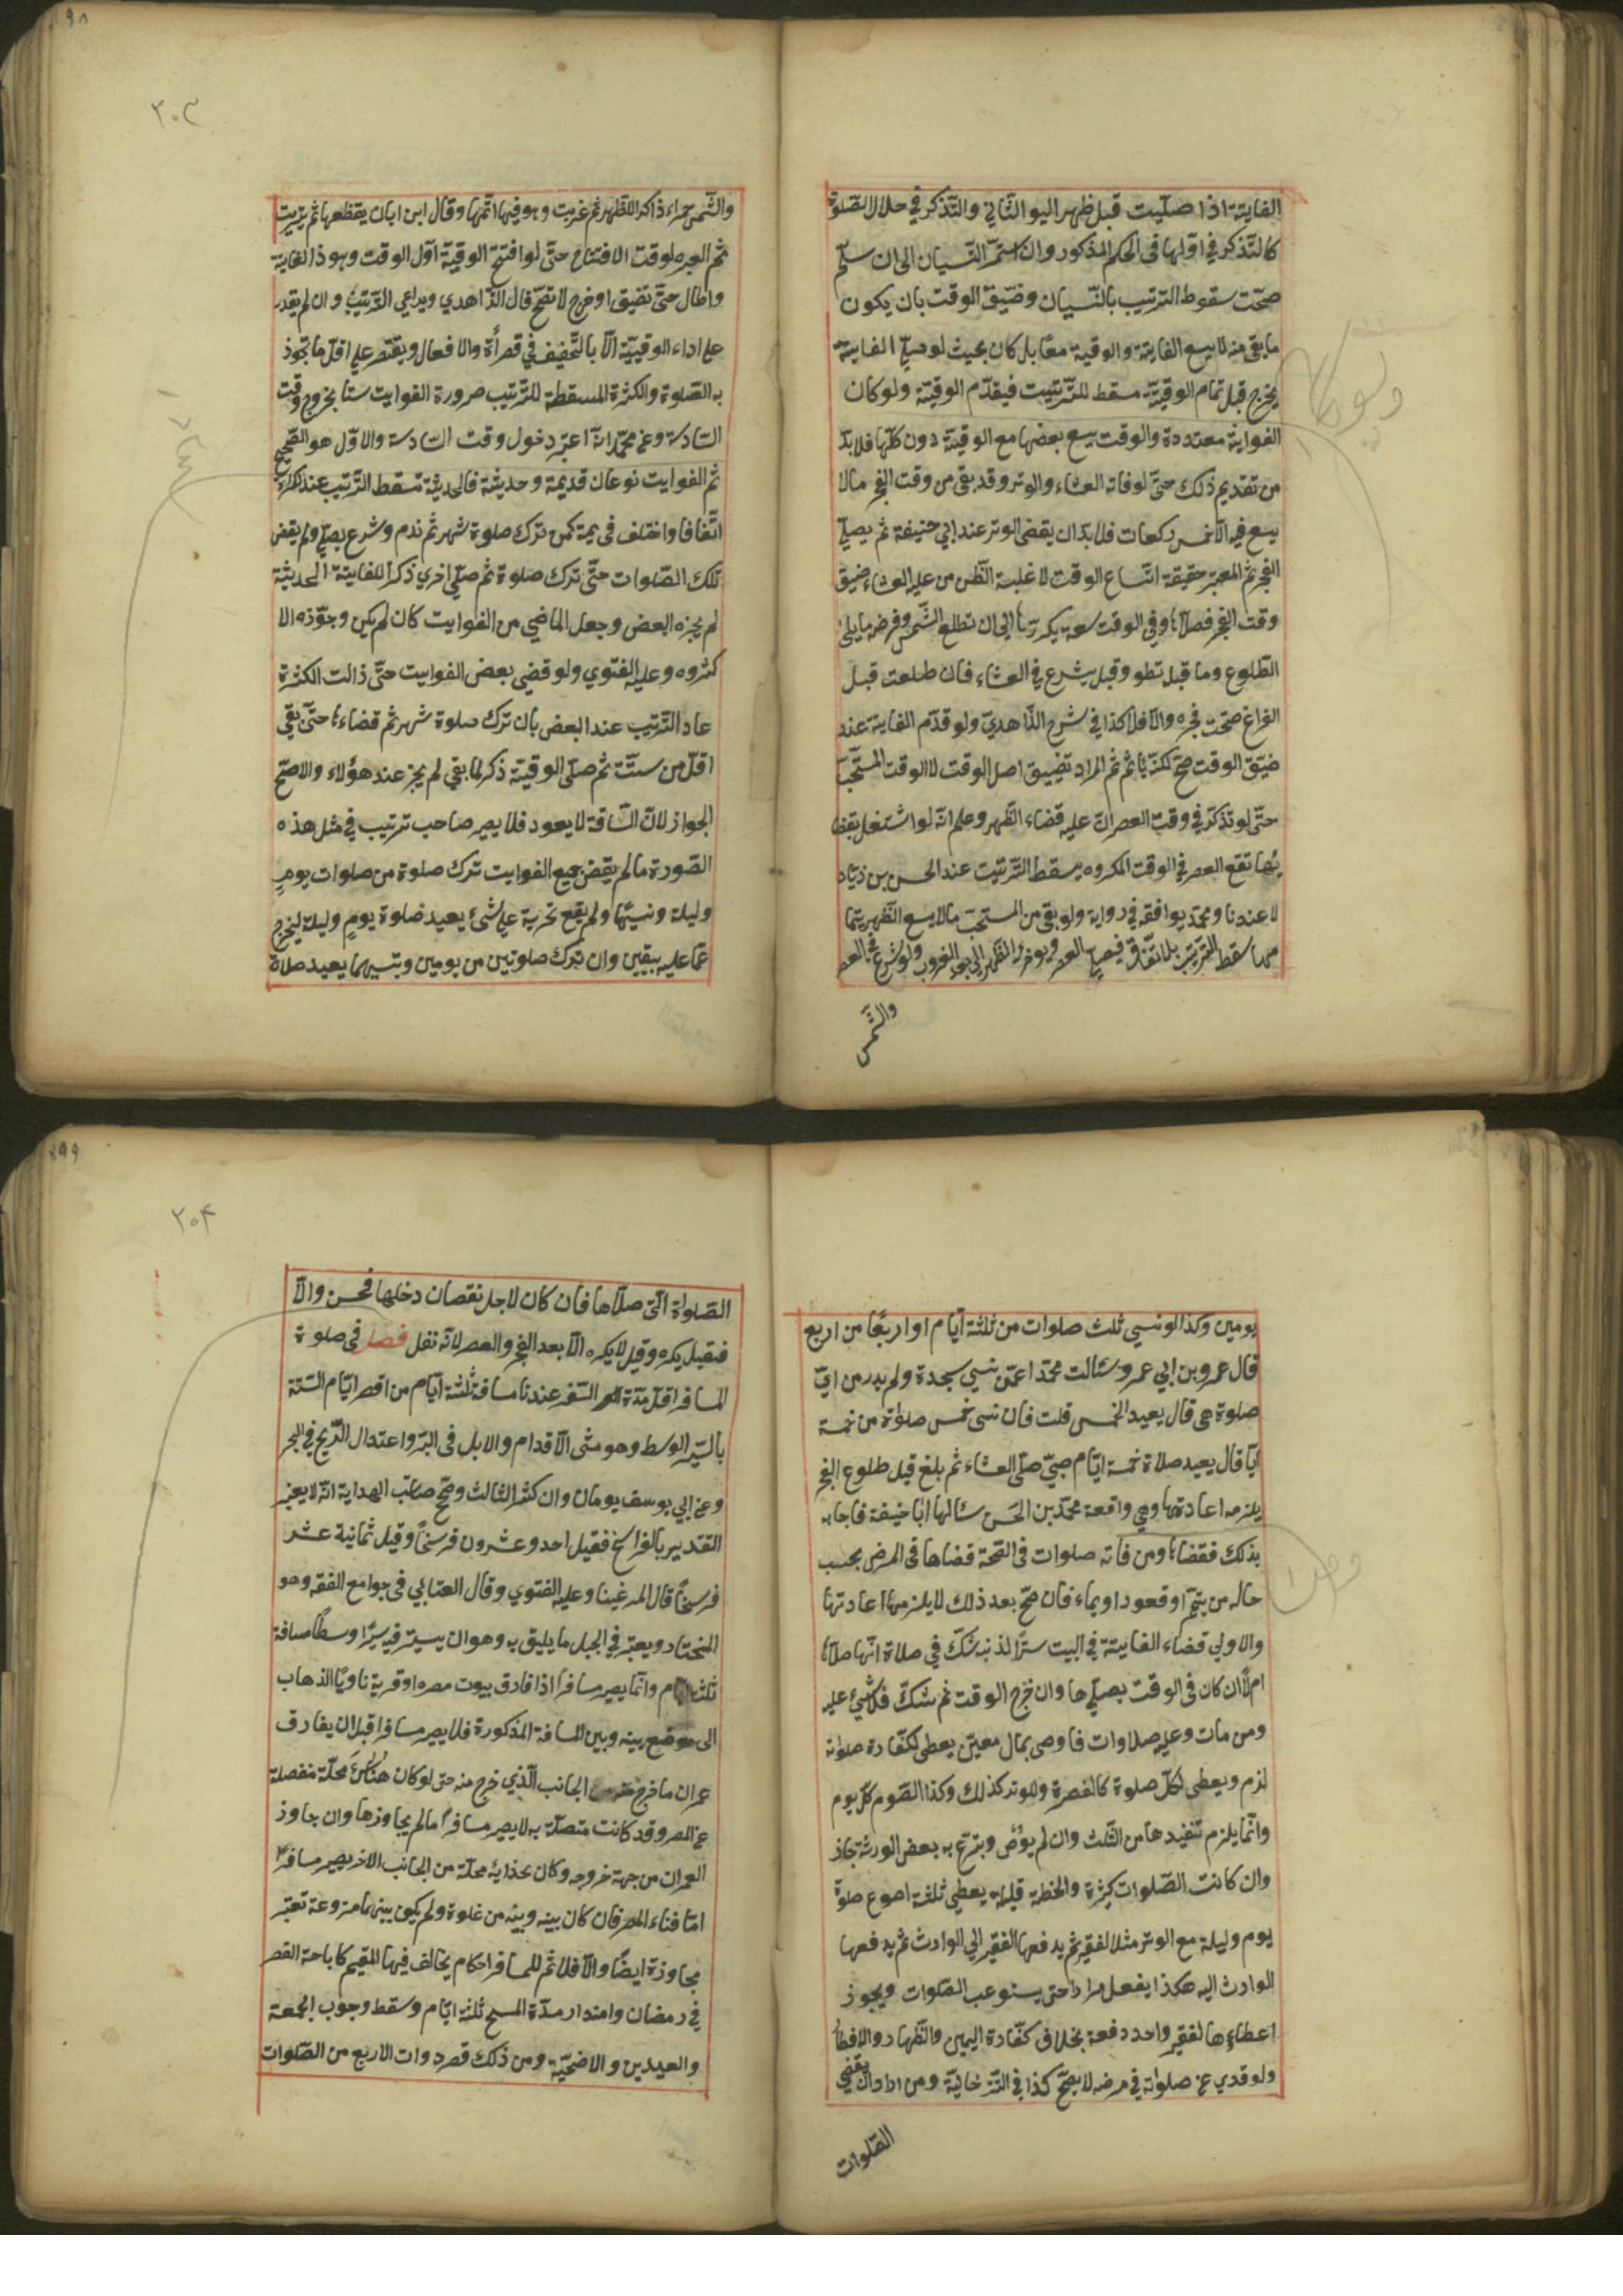 الفايتة اذا صلّيت قبل ظهر اليو الثاني والتّذكر في خلال الصّلوة
كالتّذكر في اوّلها في الحكم المذكور وان استمرّ النّسيان الى ان سلّم
صحّت سقوط الترتيب بالنّسيان وضيق الوقت بان يكون
ما بقى منه لا يسع الفايتة والوقتية معًا بل كان بحيث لو صلّي الفايتة
يخرج قبل تمام الوقتيّة مسقط للتّرتيب فيقدّم الوقتيّة ولو كان
الفوايتة معتددة والوقت يسع بعضها مع الوقتيّة دون كلّها فلا بدّ
من تقديم ذلك حتّى لو فاته العشاء والوتر وقد بقى من وقت الفجر مالا
يسع فيه الّا خمس ركعات فلا بدّ ان يقضى الوتر عند ابي حنيفة ثم يصلّي
الفجر ثمّ المعتبر حقيقة اتّساع الوقت لا غلبة الظّن من عليه العشاء ضيق
وقت الفجر فصلّاها وفى الوقت سعة يكررّها الى ان تطلع الشّمس وفرضه ما يلى
الطّلوع وما قبله تطو وقبل يشرع في العشاء فان طلعت قبل
الفراغ صحّت فجره والّا فلا كذا في شرح الذّاهديّ ولو قدّم الفايتة عند
ضيق الوقت صحّ لكنّه يأثم ثم المراد تضييق اصل الوقت لا الوقت المستحّب
حتّى لو تذكّر في وقت العصر انّ عليه قضاء الظّهر وعلم انّه لو اشتغل بقضا
ئها تقع العصر في الوقت المكروه يسقط التّرتيب عند الحسن بن ذياد
لا عندنا ومحمّد يوافقه في رواية ولو بقى من المستحبّ مالا يسع الظّهر بتما
مها سقط التّرتيب بلا اتّفاق فيصلّي العصر ويوخر الظّهر الى بعد الغروب ولو شرع في العصر
والشّمس
٢٠٣
والشّمس حمراء ذاكرا للظّهر ثم غربت وهو فيها اتمّها وقال ابن ابان يقطعها ثم يترتب
ثم العبره لوقت الافتتاح حتّى لو افتتح الوقتيّة اوّل الوقت وهو ذا لفايتة
واطال حتّى تضيق او خرج لا تصحّ قال الذّاهدي ويراعى التّرتيب وان لم يقدر
على اداء الوقتيّة الّا بالتّخفيف في قصرأة والافعال ويقتصر على اقلّ ما تجوذ
به الصّلوة والكثرة المسقطة للتّرتيب صرورة الفوايت ستا بخروج وقت
السّادسة وعن محمّد انّه اعتبر دخول وقت السّادسة والاوّل هو الصّحيح
ثم الفوايت نوعان قديمة وحديثة فالحديثة تسقط التّرتيب عند كثرة
اتّفاقا واختلف في يمة كمن ترك صلوة شهر ثم ندم وشرع يصلّي ولم يقض
تلك الصّلوات حتّى ترك صلوة ثم صلّي اخرى ذكرًا للفايتة الحديثة
لم يجزه البعض وجعل الماضي من الفوايت كان لم يكن وجوّذه الا
كثروه وعليه الفتوي ولو قضى بعض الفوايت حتّى ذالت الكثرة
عاد التّرتيب عند البعض بان ترك صلوة شهر ثم قضاءها حتّى بقى
اقلّ من ستّة ثم صلّى الوقتيّة ذكر لما بقى لم يجز عند هؤلاء والاصّح
الجواز لانّ السّاقة لا يعود فلا يصير صاحب ترتيب في مثل هذه
الصّورة مالم يقض جميع الفوايت ترك صلوة من صلوات يوم
وليلة ونسيها ولم يقع تحرية على شئ يعيد صلوة يوم وليلة ليخرج
عمّا عليه بيقين وان ترك صلوتين من يومين ونسيهما يعيد صلاة
يومين وكذا لو نسي ثلث صلوات من ثلثة ايّام او اربعًا من اربع
قال عمرو بن ابي عمرو سئالت محمّدا عمّن نسي سجدة ولم يدر من ايّ
صلوة هى قال يعيد الخمس قلت فان نسى خمس صلوات من خمسة
ايّا قال يعيد صلاة خمسة ايّام صبيّ صلّى العشاء ثم بلغ قبل طلوع الفجر
يلزمه اعادتها وهي واقعة محمّد بن الحسن سئالها ابا حنيفة فاجابه
بذلك فقضاها ومن فاته صلوات في الصّحة قضاها في المرض بحسب
حاله من يتيّم او قعود او يماء فان صحّ بعد ذلك لا يلزمه اعادتها
والاولى قضاء الفايتة في البيت سترًا لذنبه شكّ في صلاة انّها صلّاها
ام لا ان كان في الوقت يصلّيها وان خرج الوقت ثم شكّ فلا شئ عليه
ومن مات وعليه صلاوات فاوصى بمال معيّن يعطى لكفّارة صلواته
لزم ويعطى لكلّ صلوة كالفصرة وللوتر كذلك وكذا الصّوم كلّ يوم
وانّما يلزم تنفيذها من الثّلث وان لم يوُص وبترّع به بعض الورثة جاذ
وان كانت الصّلوات كثيرة والخطة قليلة يعطي ثلثة اصوع صلوة
يوم وليلة مع الوتر مثلا لفقير ثم يدفعها الفقير الى الوارث ثم يدفعها
الوارث اليه هكذا يفعل مرارا حتى يستوعب الصّلوات ويجوذ
اعطاءها لفقير واحد دفعة بخلاف كفّارة اليمين والظّهار والافطار
ولو فدي عن صلواته في مرضه لا يصحّ كذا في التّترخانيّة ومن اراد ان يقضى
الصّلوات
٢٠۴
الصّلواة الّتى صلّاها فان كان لاجل نقصان دخلها فحسن والّا
فقيل يكره وقيل لا يكره الّا بعد الفجر والعصر لانّه نفل فصل فى صلوة
المسافر اقلّ مدّة السّفر عندنا مسافة ثلثة ايّام من اقصر ايّام السّنة
بالسّير الوسط وهو مشى الاقدام والابل فى البرّ واعتدال الرّيح في البحر
وعن ابي يوسف يومان وان كثر الثالث وصحّ صاحب الهداية انّه لا يعتبر
التقدير بالفراسخ فقيل احد وعشرون فرسخًا وقيل ثمانية عشر
فرسخًا قال المرغينا وعليه الفتوي وقال العتابي فى جوامع الفقه وهو
المختاد ويعتبر في الجبل ما يليق به وهو ان يسير فيه سيرًا وسطًا مسافة
ثلثة ايّام وانّما يصير مسافرًا اذا فارق بيوت مصره او قرية ناويًا الذهاب
الى موضع بينه وبين المسافة المذكورة فلا يصير مسافرا قبل ان يفارق
عمران ما خرج منه من الجانب الّذي خرج منه حتى لو كان هناك محلّة منفصلة
عن المصر وقد كانت متصلّة به لا يصير مسافرًا مالم يجاوزها وان جاوز
العمران من جهة خروجه وكان بحذايه محلّة من الجانب الاخر يصير مسافرًا
امّا فناء المصر فان كان بينه وبينه من غلوة ولم يكن بينهما مزروعة تعتبر
مجاوزة ايضًا والّا فلا ثم للمسافر احكام يخالف فيها المقيم كاباحة الفصر
في رمضان وامتداد مدّة المسح ثلثة ايّام وسقط وجوب الجمعة
والعيدين والاضحيّة ومن ذلك قصر دوات الاربع من الصّلوات